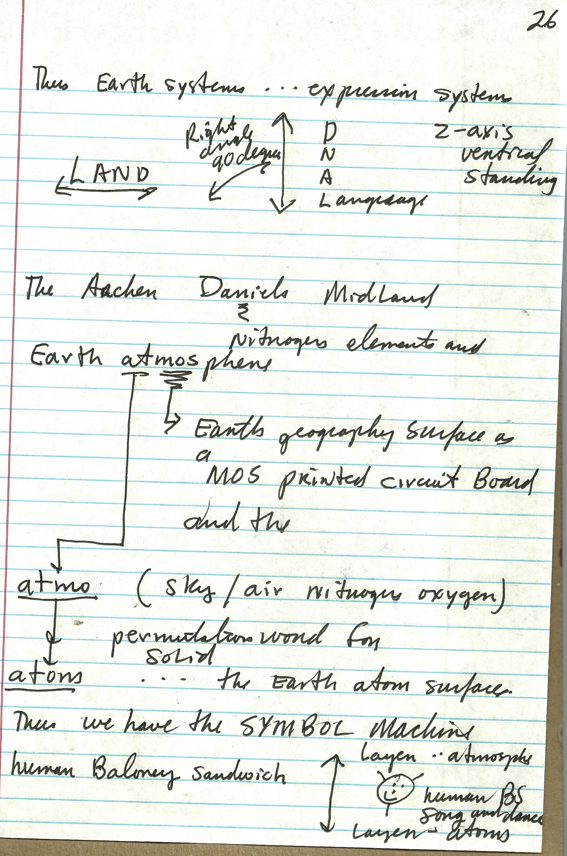 26
Thus Earth systems ... expression systems
Right angle 90 degree
D Z-axis
N ventrical
A standing
Language
LAND
The Aachen Daniels MidLand
Nitrogen elements and
Earth atmosphere
Earth geography surface as
a
MOS printed circuit Board
and the
atmo (sky / air nitrogen oxygen)
permutation word for
solid
atoms .... the Earth atom surface.
Thus we have the SYMBOL Machine
human Baloney sandwich
Layer .. atmosphe
human BS
song and dance
Layer - atoms